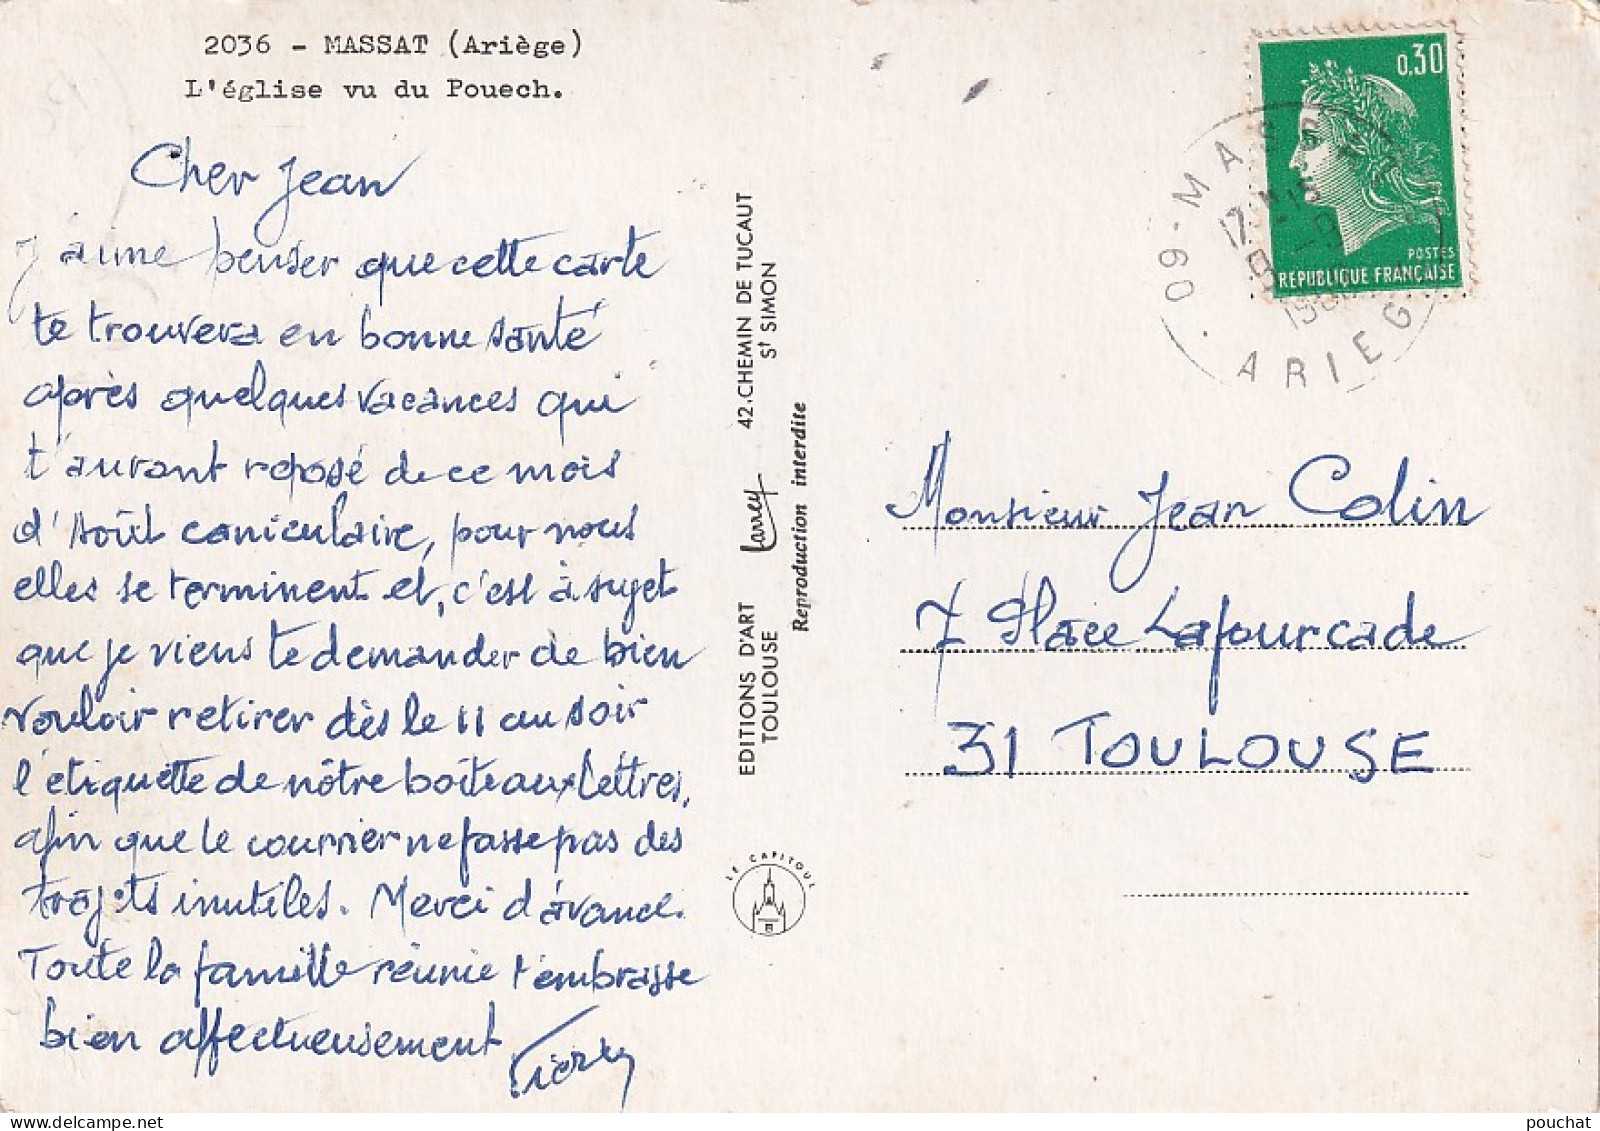 2036 - MASSAT (Ariège)
L'église vu du Pouech.
Cher Jean
J'aime penser que cette carte
te trouvera en bonne santé
après quelques vacances qui
t'auront reposé de ce mois
d'Août caniculaire, pour nous
elles se terminent et, c'est à sujet
que je viens te demander de bien
vouloir retirer dès le 11 au soir
l'étiquette de nôtre boîte aux lettres,
afin que le courrier ne fasse pas des
trajets inutiles. Merci d'avance.
Toute la famille réunie t'embrasse
bien affectueusement
EDITIONS D'ART Larrey 42. CHEMIN DE TUCAUT
TOULOUSE St SIMON
Reproduction interdite
LE CAPITOUL
0,30
POSTES
REPUBLIQUE FRANÇAISE
09 · MASSAT · ARIEGE
17 H 15
Monsieur Jean Colin
7 Place Lafourcade
31 TOULOUSE
pouchat